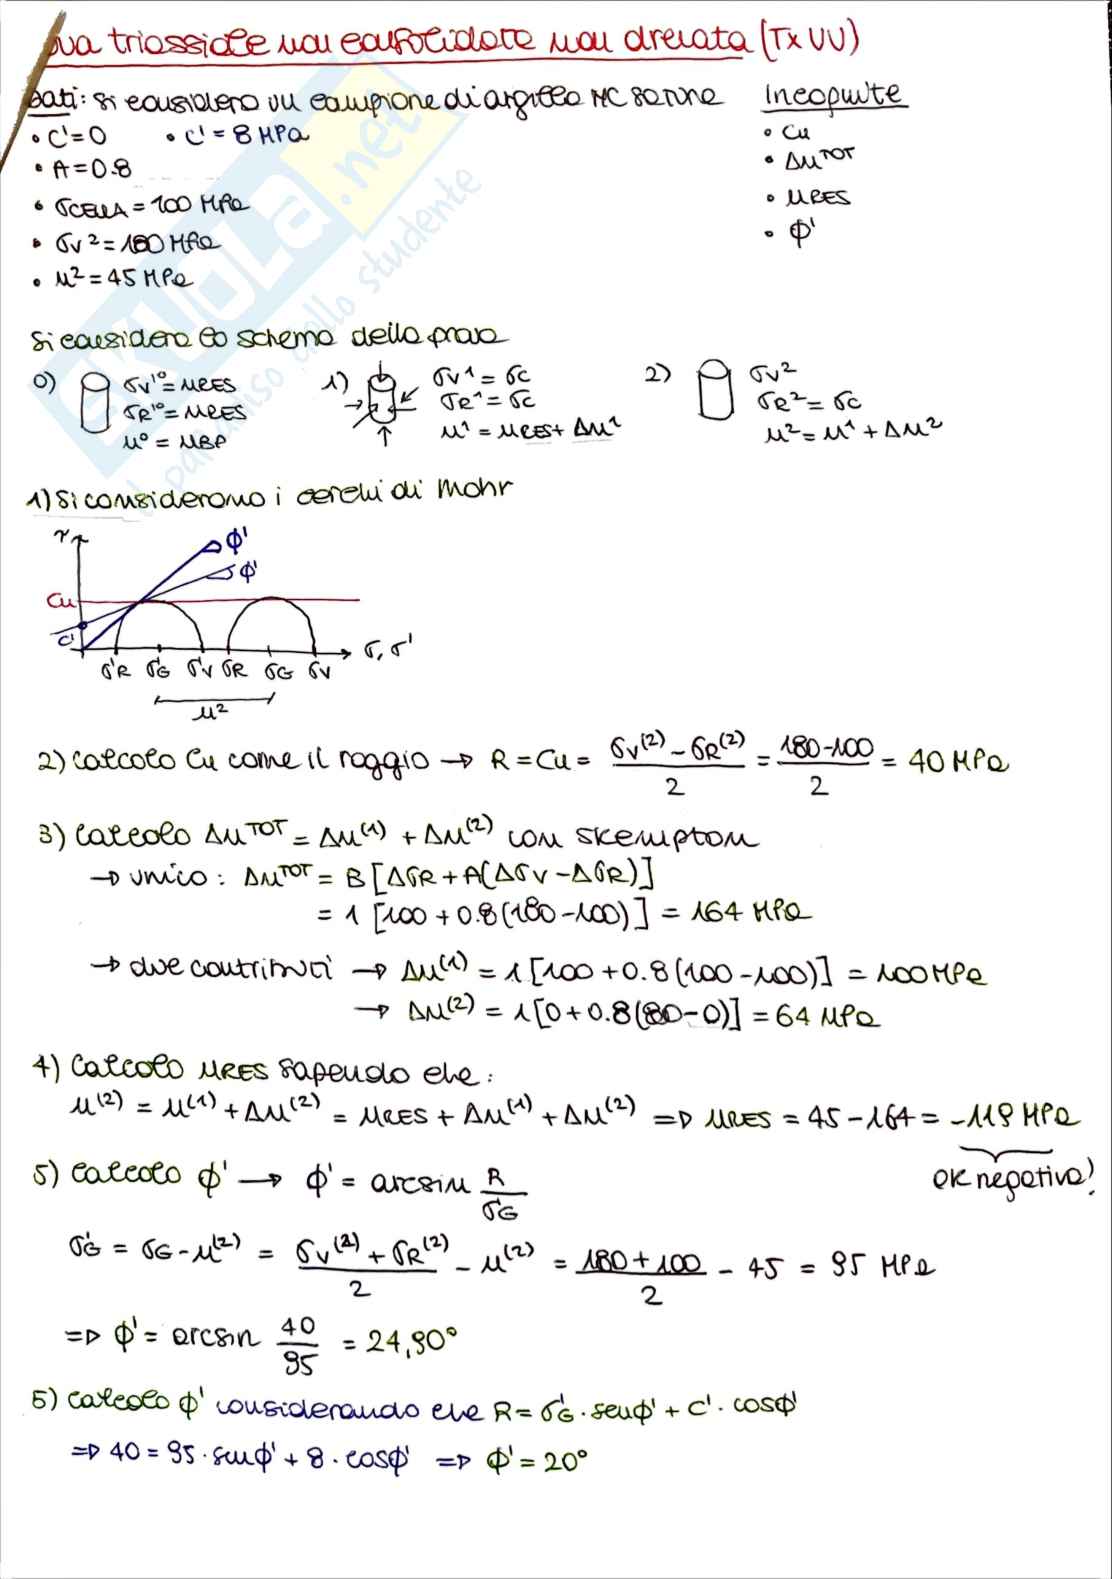 ova triassiale non consolidata non drenata (Tx UU)
Dati: si considera un campione di argilla NC satura
Incognite
• C'=0 • C' = 8 MPa
• Cu
• A=0.8
• Δu^TOT
• σCELLA = 100 MPa
• uRES
• σv² = 180 MPa
• ϕ'
• u² = 45 MPa
Si considera lo schema della prova
0) σv'⁰ = uRES
σR'⁰ = uRES
u⁰ = uBP
1) σv¹ = σc
σR¹ = σc
u¹ = uRES + Δu¹
2) σv²
σR² = σc
u² = u¹ + Δu²
1) Si considerano i cerchi di Mohr
τ
ϕ'
ϕ'
Cu
C'
σ, σ'
σ'R σ'G σ'v σR σG σv
u²
2) Calcolo Cu come il raggio → R = Cu = (σv⁽²⁾ - σR⁽²⁾)/2 = (180-100)/2 = 40 MPa
3) Calcolo Δu^TOT = Δu⁽¹⁾ + Δu⁽²⁾ con Skempton
→ unico: Δu^TOT = B [ΔσR + A(Δσv - ΔσR)]
= 1 [100 + 0.8(180-100)] = 164 MPa
→ due contributi → Δu⁽¹⁾ = 1[100 + 0.8(100-100)] = 100 MPa
→ Δu⁽²⁾ = 1[0 + 0.8(80-0)] = 64 MPa
4) Calcolo uRES sapendo che:
u⁽²⁾ = u⁽¹⁾ + Δu⁽²⁾ = uRES + Δu⁽¹⁾ + Δu⁽²⁾ ⇒ uRES = 45 - 164 = -119 MPa
ok negativa!
5) Calcolo ϕ' → ϕ' = arcsin R/σ'G
σ'G = σG - u⁽²⁾ = (σv⁽²⁾ + σR⁽²⁾)/2 - u⁽²⁾ = (180+100)/2 - 45 = 95 MPa
⇒ ϕ' = arcsin 40/95 = 24,90°
6) Calcolo ϕ' considerando che R = σ'G · senϕ' + C' · cosϕ'
⇒ 40 = 95 · senϕ' + 8 · cosϕ' ⇒ ϕ' = 20°
SKUOLA.net
il paradiso dello studente